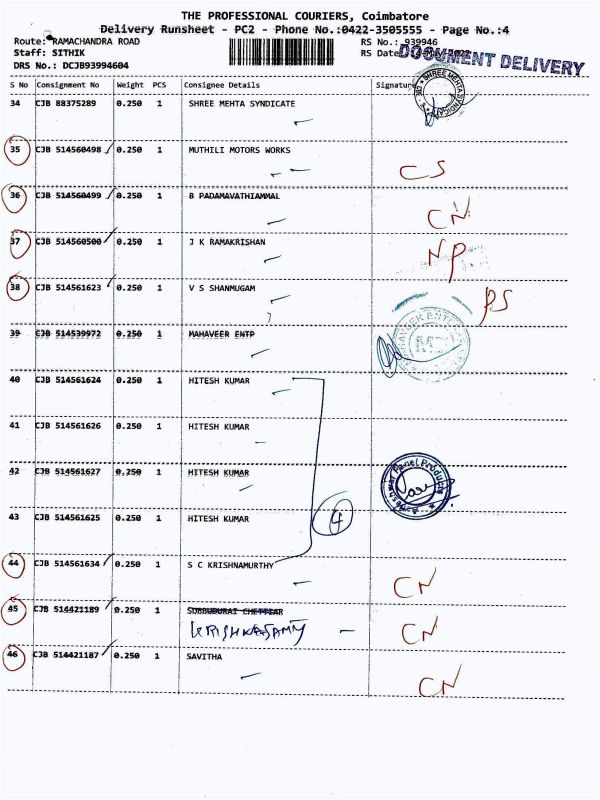 THE PROFESSIONAL COURIERS, Coimbatore
Delivery Runsheet - PC2 - Phone No.:0422-3505555 - Page No.:4
Route: RAMACHANDRA ROAD RS No.: 939946
Staff: SITHIK RS Date:
DOCUMENT DELIVERY
DRS No.: DCJB93994604
S No Consignment No Weight PCS Consignee Details Signature
34 CJB 88375289 0.250 1 SHREE MEHTA SYNDICATE
SHREE MEHTA SYNDICATE
35 CJB 514560498 0.250 1 MUTHILI MOTORS WORKS CS
36 CJB 514560499 0.250 1 B PADAMAVATHIAMMAL CN
37 CJB 514560500 0.250 1 J K RAMAKRISHAN NP
38 CJB 514561623 0.250 1 V S SHANMUGAM PS
39 CJB 514539972 0.250 1 MAHAVEER ENTP
40 CJB 514561624 0.250 1 HITESH KUMAR
41 CJB 514561626 0.250 1 HITESH KUMAR
42 CJB 514561627 0.250 1 HITESH KUMAR
Panel Products
43 CJB 514561625 0.250 1 HITESH KUMAR 4
44 CJB 514561634 0.250 1 S C KRISHNAMURTHY CN
45 CJB 514421189 0.250 1 SUBBUDURAI CHETTIAR
KRISHNASAMY CN
46 CJB 514421187 0.250 1 SAVITHA CN